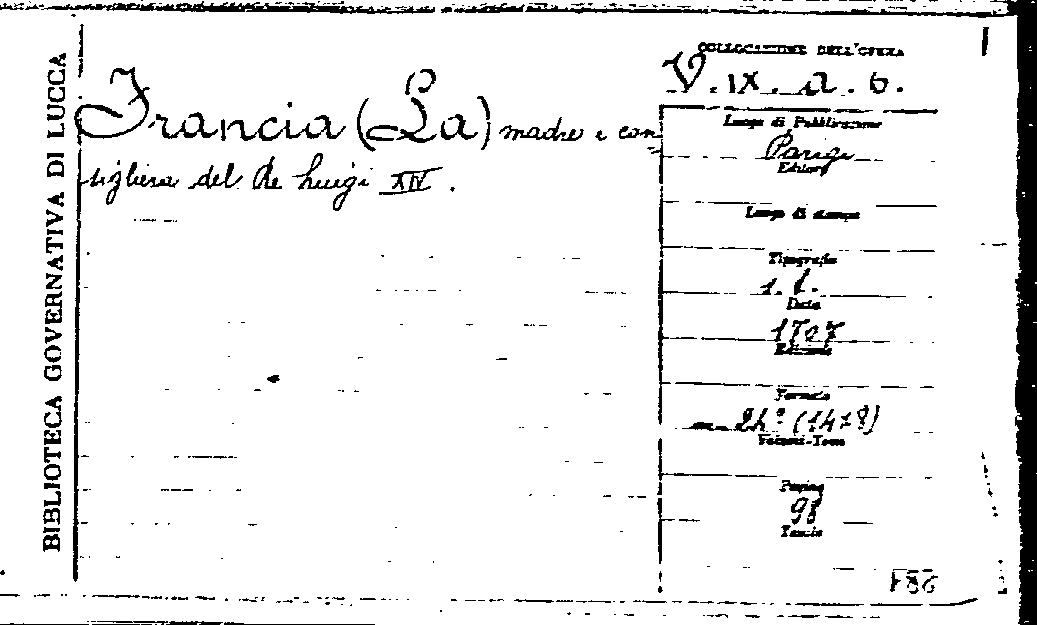 BIBLIOTECA GOVERNATIVA DI LUCCA
Francia (La) madre e con=
sigliera del Re Luigi XIV.
COLLOCAZIONE DELL'OPERA
V. IX. a. 6.
Luogo di Pubblicazione
Parigi
Editore
Luogo di stampa
Tipografia
s. t.
Data
1707
Edizione
Formato
in 24º (14×8)
Volumi-Tomo
Pagine
98
Tavole